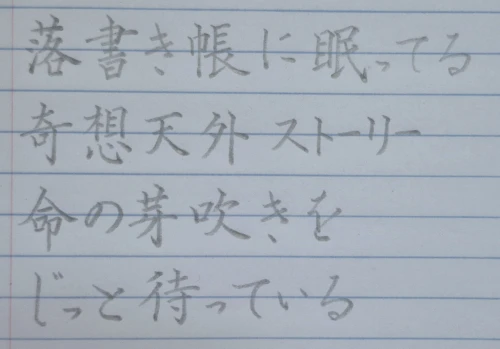 落書き帳に眠ってる
奇想天外 ストーリー
命の芽吹きを
じっと待っている